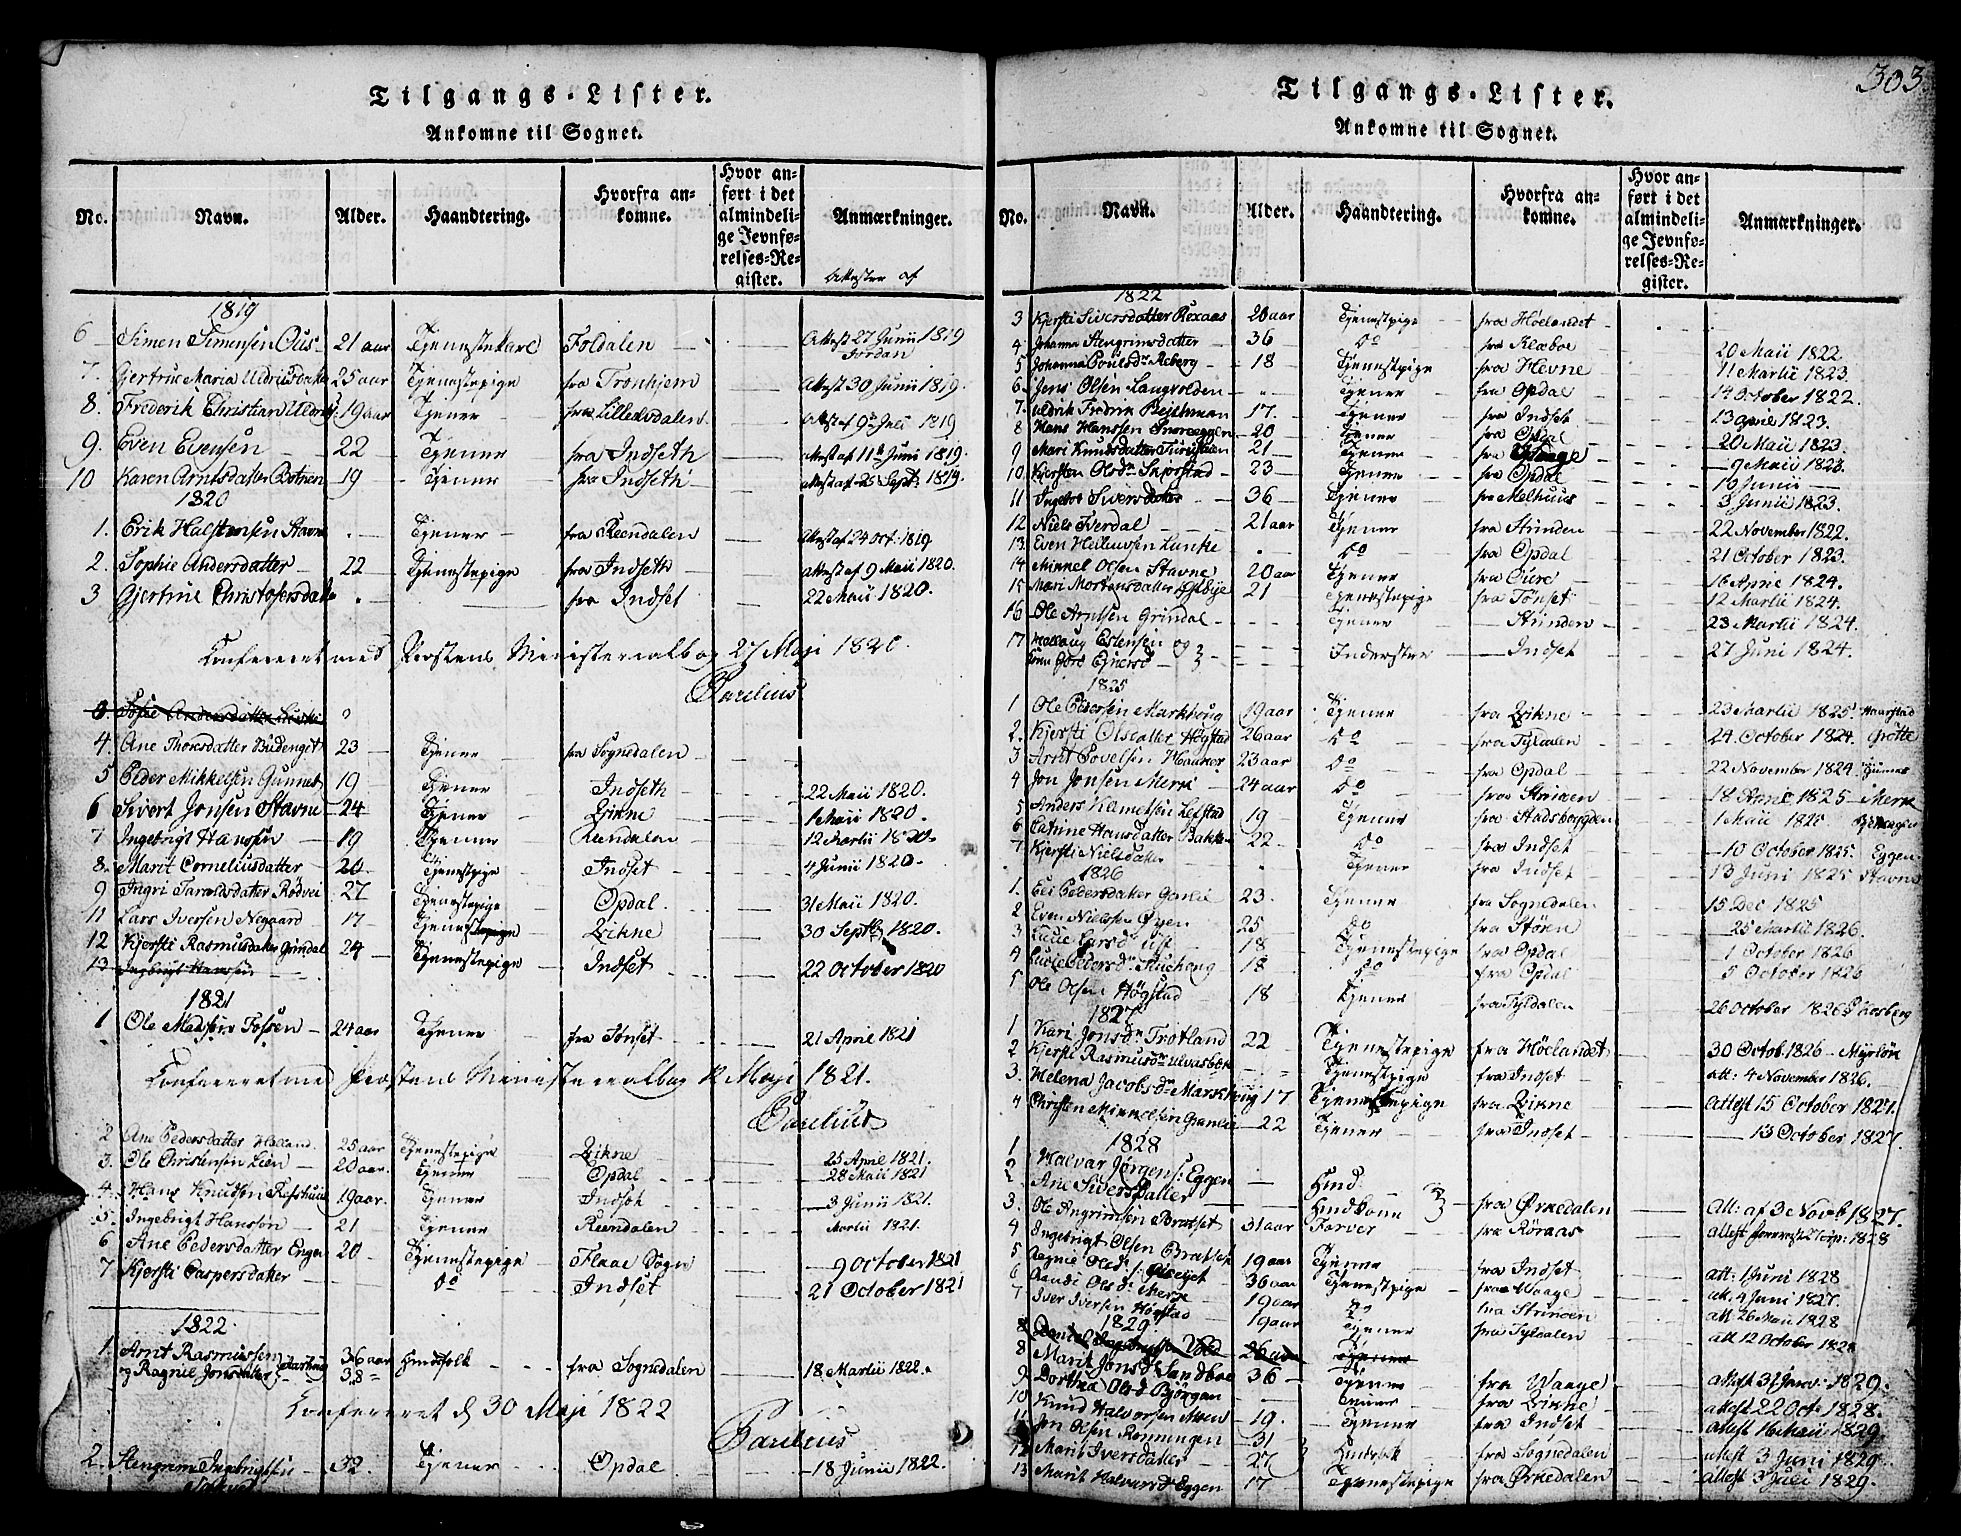 Tilgangs-Lister.
Ankomne til Sognet.
No. Navn. Alder. Haandtering. Hvorfra ankomne. Hvor anført i det almindelige Jevnførelses-Register. Anmærkninger.
Attester af
1819
6 Simen Simensen Ous 21 aar Tjenestekarl Foldalen Attest 27 Junii 1819 Jordan
7. Gjertrue Maria Uldricsdatter 25 aar Tjenestepige fra Tronhjem Attest 30 Junii 1819.
8. Frederik Christian Uldrics: 19 aar Tjener fra Lilleelvdalen Attest af 9de Juli 1819
9. Even Evensen 22 Tjener fra Indseth Attest af 11te Junii 1819.
10 Karen Arntsdatter Botnen 19 Tjener fra Indseth Attest af 26 Sept: 1819.
1820
1. Erik Halstensen Stavne Tjener fra Reendalen Attest af 24 Oct: 1819
2. Sophie Andersdatter 22 Tjenestepige fra Indseth Attest af 9 Maii 1820.
3 Gjertrue Christofersdatter fra Indset 22 Maii 1820.
Confereret med Provstens Ministerialbog 27 Maji 1820.
Parelius
4. Ane Thoresdatter Budenget 23 Tjener fra Sognedalen
5 Peder Mikkelsen Gunnes 19 Tjener Indseth 22 Maii 1820.
6 Sivert Jonsen Stavne 24 Tjener Qvikne 1 Maii 1820.
7 Ingebrigt Hansen 19 Tjener Reendalen 12 Martii 1820.
8. Marit Corneliusdatter 20 Tjenestepige Indset 4 Junii 1820.
9 Ingri Taraldsdatter Rødvei 27 Tjenestepige Opdal 31 Maii 1820.
11 Lars Iversen Negaard 17 Tjenestepige Qvikne 30 Septb 1820.
12 Kjersti Rasmusdatter Grindal 24 Tjenestepige Indset 22 October 1820
13 Ingebrigt Hansen
1821
1 Ole Madsen Fossen 24 aar Tjener fra Tønset 21 April 1821
Confereret med Provstens Ministerialbog 12 Maji 1821.
Parelius
2 Ane Pedersdatter Holland 25 aar Tjenestepige Qvikne 25 April 1821.
3. Ole Christensen Lien 20 aar Tjener Opdal 28 Maii 1821
4. Hans Knudsen Refshuus 19 aar Tjener Indset 3 Junii 1821.
5. Ingebrigt Hansøn 21 Tjener Reendalen Martii 1821.
6 Ane Pedersdatter Engen 20 Tjenestepige Flaae Sogn 9 October 1821
7 Kjersti Caspersdatter do Indset 21 October 1821
1822
1. Arnt Rasmussen 36 aar Huusfolk fra Sognedalen 18 Martii 1822.
og Ragnie Jonsdatter 38
Confereret d 30 Maji 1822
Parelius
2. Stengrim Ingebrigtsen 32 Tjener Opdal 18 Junii 1822.
303.
Tilgangs-Lister.
Ankomne til Sognet.
No. Navn. Alder. Haandtering. Hvorfra ankomne. Hvor anført i det almindelige Jevnførelses-Register. Anmærkninger.
1822
3 Kjersti Siversdatter Roxaas 20 aar Tjenestepige fra Høelandet
4 Johanna Stengrimsdatter 36 do fra Klæboe 20 Maii 1822.
5 Johanna Poulsdr Aaberg 18 Tjenestepige fra Hevne 11 Martii 1823.
6 Jens Olsen Langvolden Tjener fra Opdal 14 October 1822.
7. Uldrik Fredrik Beichman 17. Tjener fra Indset 13 April 1823.
8 Hans Hanssen Snoreggen 20 Tjener fra Opdal 20 Maii 1823.
9 Mari Knudsdatter 21 Tjener fra Waage 9 Maii 1823.
10 Kjersten Olsdr Skorstad 23 Tjener fra Opdal 16 Junii
11 Ingebor Siversdatter 36 Tjener fra Melhuus 3 Junii 1823.
12 Niels Iverdal 21 aar Tjener fra Strinden 22 November 1822.
13 Even Lunke do fra Opdal 21 October 1823.
14 Mikkel Olsen Stavne 20 aar Tjener fra 16 April 1824.
15 Mari Mortensdatter 21 Tjenestepige fra Tønset 12 Martii 1824.
16 Ole Arntsen Grindal Tjener Strinden 23 Martii 1824.
17 Estensen og Inderster Indset 27 Juni 1824.
1825
1 Ole Pedersen Markhoug 19 aar Tjener fra Qvikne 23 Martii 1825. Haarstad
2. Kjersti Olsdatter Høgstad 26 aar do fra Tyldalen 24. October 1824. Grötte
3 Arnt Povelsen Haaker 23 aar do fra Opdal 22 November 1824 Gunnes
4 Jon Jonsen Merk 24 aar do fra Strinden 18 April 1825 Merk
5 Anders Klemetsen Lefstad 19 Tjener fra Stadsbøygden 1 Maii 1825
6 Catrine Hansdatter Bakke 22 do fra Indset 10 October 1825. Eggen
7 Kjersti Nielsdatter Tjener fra Indset 13 Juni 1825 Stavne
1826
1. Eli Pedersdatter Granlie 23. Tjener fra Sognedalen 15 Dec 1825
2 Even Nielssen Øyen 25 do fra Støren 25 Martii 1826
3 Lucie Larsd: 18 Tjenestepige fra Opdal 1 October 1826
4 Pedersdr Stuehoug 18 do fra Opdal 5 October 1826
5 Ole Olsen Høgstad 18 Tjener fra Tyldalen 26 October 1826
1827
1 Kari Jonsdr Trotland 22 Tjenestepige fra Høelandet 30 Octob 1826
2 Kjersti Rasmusdr Ulvasbæk Tjenestepige fra Indset att: 4 November 1826.
3. Helena Jacobsdr Markhoug 17 Tjenestepige fra Qvikne attest 15 October 1827.
4 Christen Mikkelsen Granlie 22 Tjener fra Indset 13 October 1827
1828
1 Halvar Jørgens: Eggen Huusd.
2 Ane Siversdatter Huuskone fra Ørkedalen att: af 3 Novb 1827.
3. Ole Angrimsen Bratset 31 aar Farver fra Röraas
4 Ingebrigt Olsen Bratset 19 aar Tjener fra Indset att: 1 Juni 1828
5 Ragnie Olsd: 36 aar Tjenestepige fra Waage att. 4 Juni 1827.
6 Randi Olsdr Merk 19 aar do fra Strinden att 26 Maii 1828
7 Iver Iversen Høgstad 19 aar Tjener fra Tyldalen att 12 October 1828
1829
8 Marit Jonsdr Sandboe 36 Tjener fra Waage attest 31 Janv: 1829.
9 Dorthea Olsd Björgan Tjener fra Qvikne attest 22 Oct: 1828.
10 Knud Halvorsen Moen 19. Tjener fra Indset attest 16 Maii 1829.
11 Jon Olsen Rønningen 31 fra Sognedalen attest 3 Juni 1829.
12 Marit Iversdatter 27
13 Marit Halvarsdr Eggen 17 Tjenestepige fra Ørkedalen attest 3 Juli 1829.